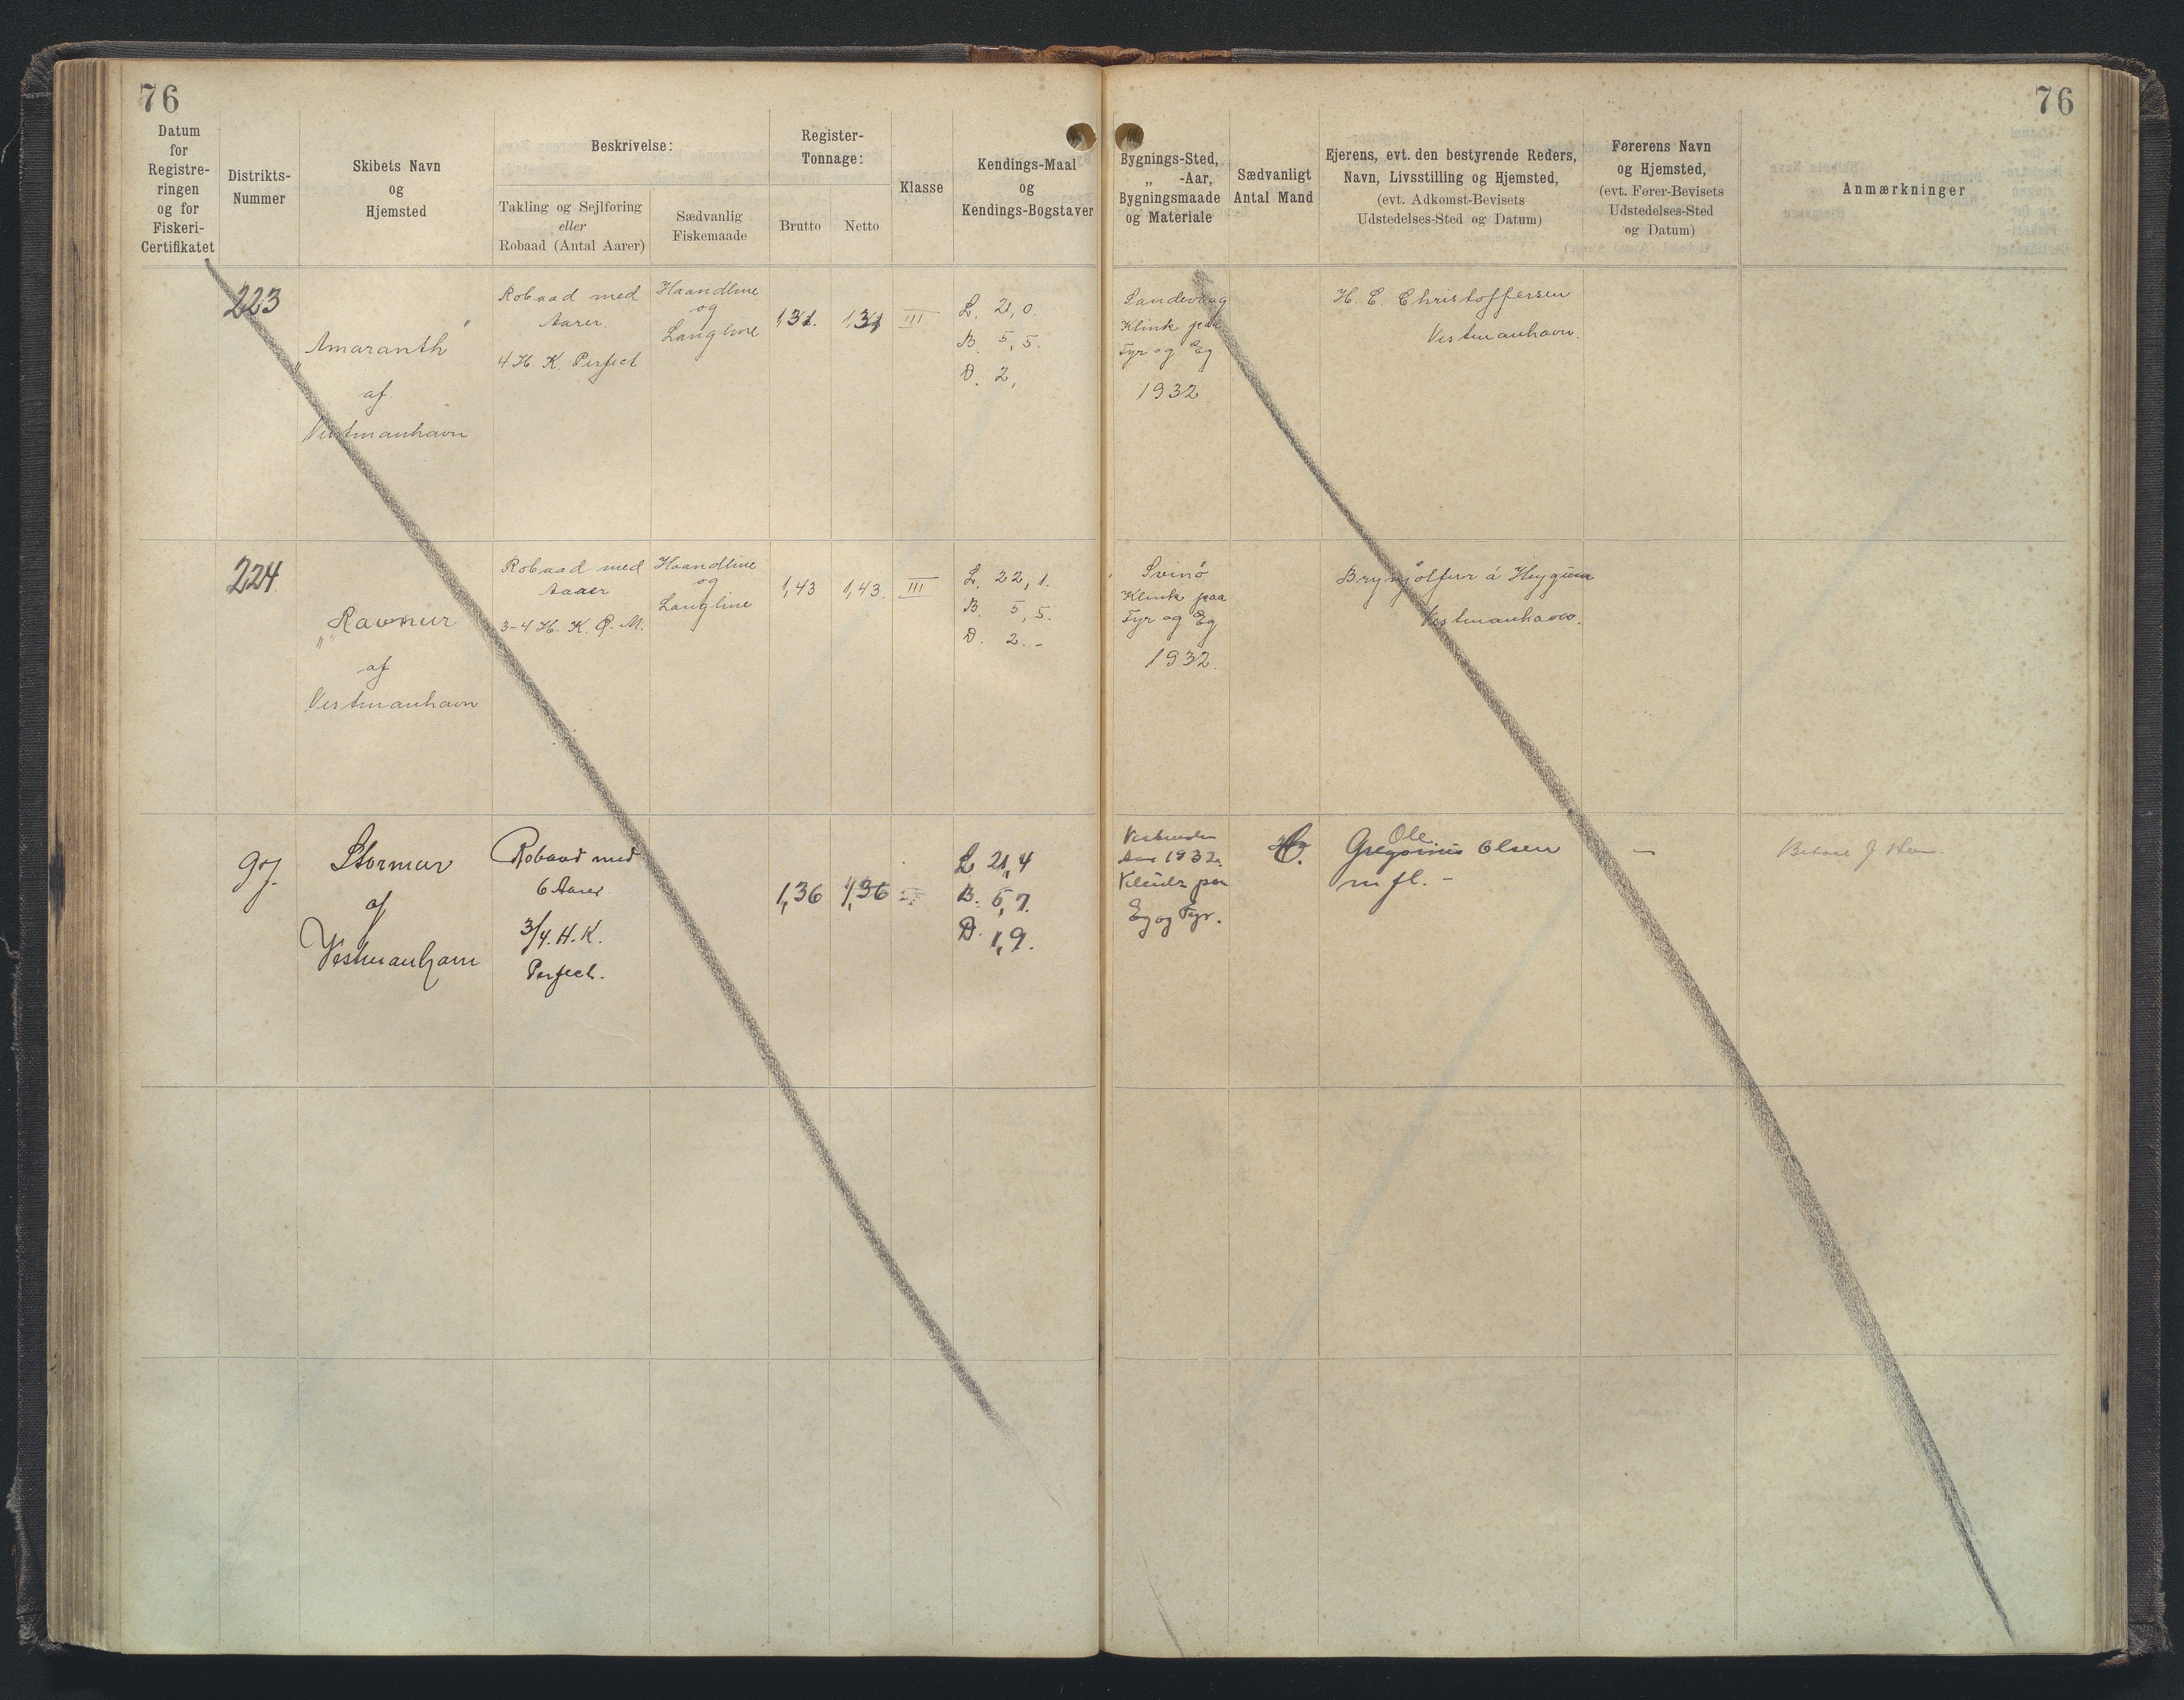 76
76
Datum
for
Registre-
ringen
og for
Fiskeri-
Certifikatet
Distrikts-
Nummer
Skibets Navn
og
Hjemsted
Beskrivelse:
Takling og Sejlføring
eller
Robaad (Antal Aarer)
Sædvanlig
Fiskemaade
Register-
Tonnage:
Brutto
Netto
Klasse
Kendings-Maal
og
Kendings-Bogstaver
Bygnings-Sted,
„ -Aar,
Bygningsmaade
og Materiale
Sædvanligt
Antal Mand
Ejerens, evt. den bestyrende Reders,
Navn, Livsstilling og Hjemsted,
(evt. Adkomst-Bevisets
Udstedelses-Sted og Datum)
Førerens Navn
og Hjemsted,
(evt. Fører-Bevisets
Udstedelses-Sted
og Datum)
Anmærkninger
223
„Amaranth"
af
Vestmanhavn
Robaad med
Aarer.
4 H. K. Perfect
Haandline
og
Langline
1,31.
1,31
III
L. 21,0.
B. 5,5.
D. 2,
Sandevaag
Klink paa
Fyr og Eg
1932.
H. C. Christoffersen
Vestmanhavn.
224
„Ravnur"
af
Vestmanhavn
Robaad med
Aarer
3-4 H. K. Q. M.
Haandline
og
Langline
1,43
1,43.
III
L. 22,1.
B. 5,5.
D. 2.-
Svinø
Klink paa
Fyr og Eg
1932.
Brynjólfur á Heygum
Vestmanhavn.
Stormur
af
Vestmanhavn
Robaad med
6 Aarer.
3/4. H. K.
Perfect.
1,36
1,36
L 21,4
B. 5,7.
D. 1,9.
Aar 1932.
Klink paa
Eg og Fyr.
Ole
Gregorius Olsen
m fl. -
-